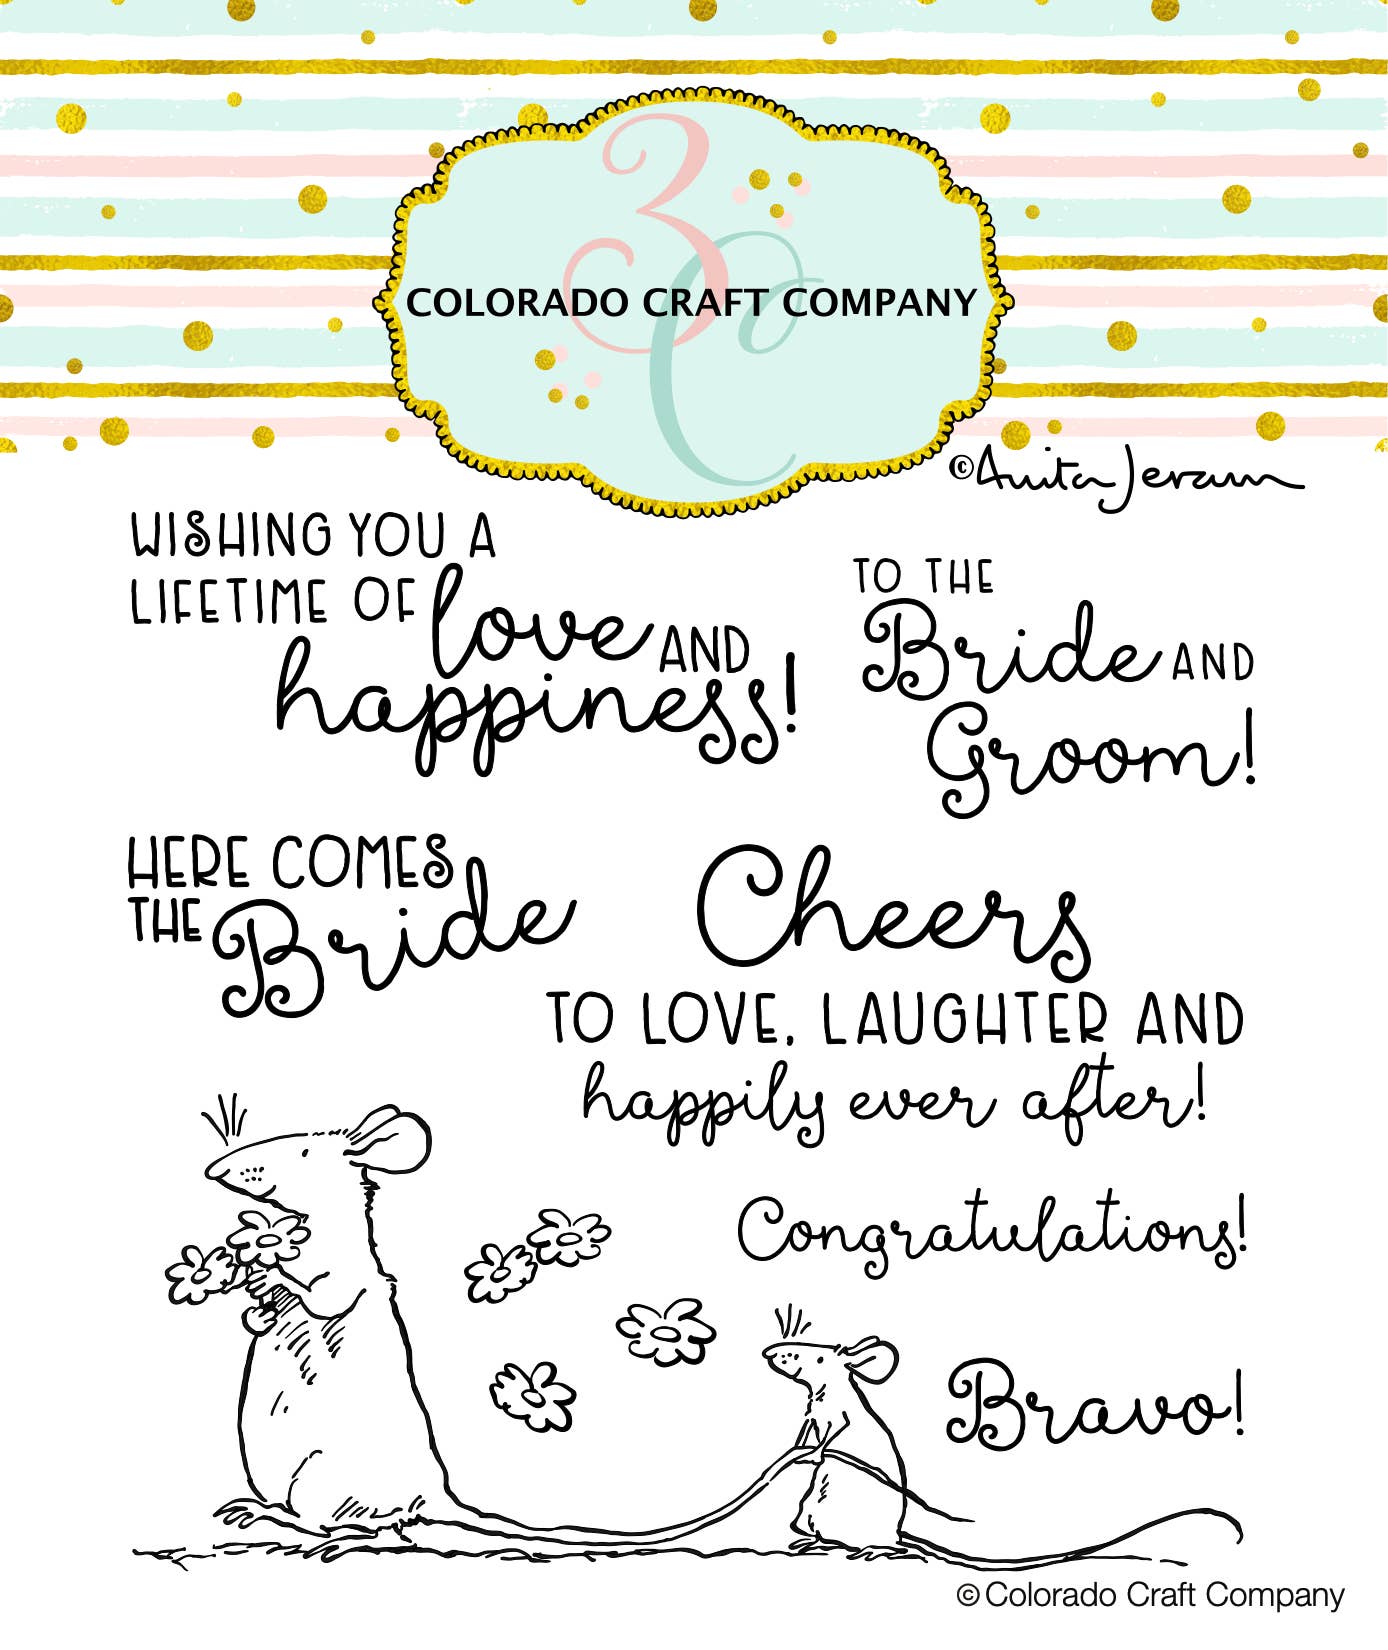 3C
COLORADO CRAFT COMPANY
©Anita Jeram
WISHING YOU A
LIFETIME OF love AND
happiness!
TO THE
Bride AND
Groom!
HERE COMES
THE Bride
Cheers
TO LOVE, LAUGHTER AND
happily ever after!
Congratulations!
Bravo!
© Colorado Craft Company